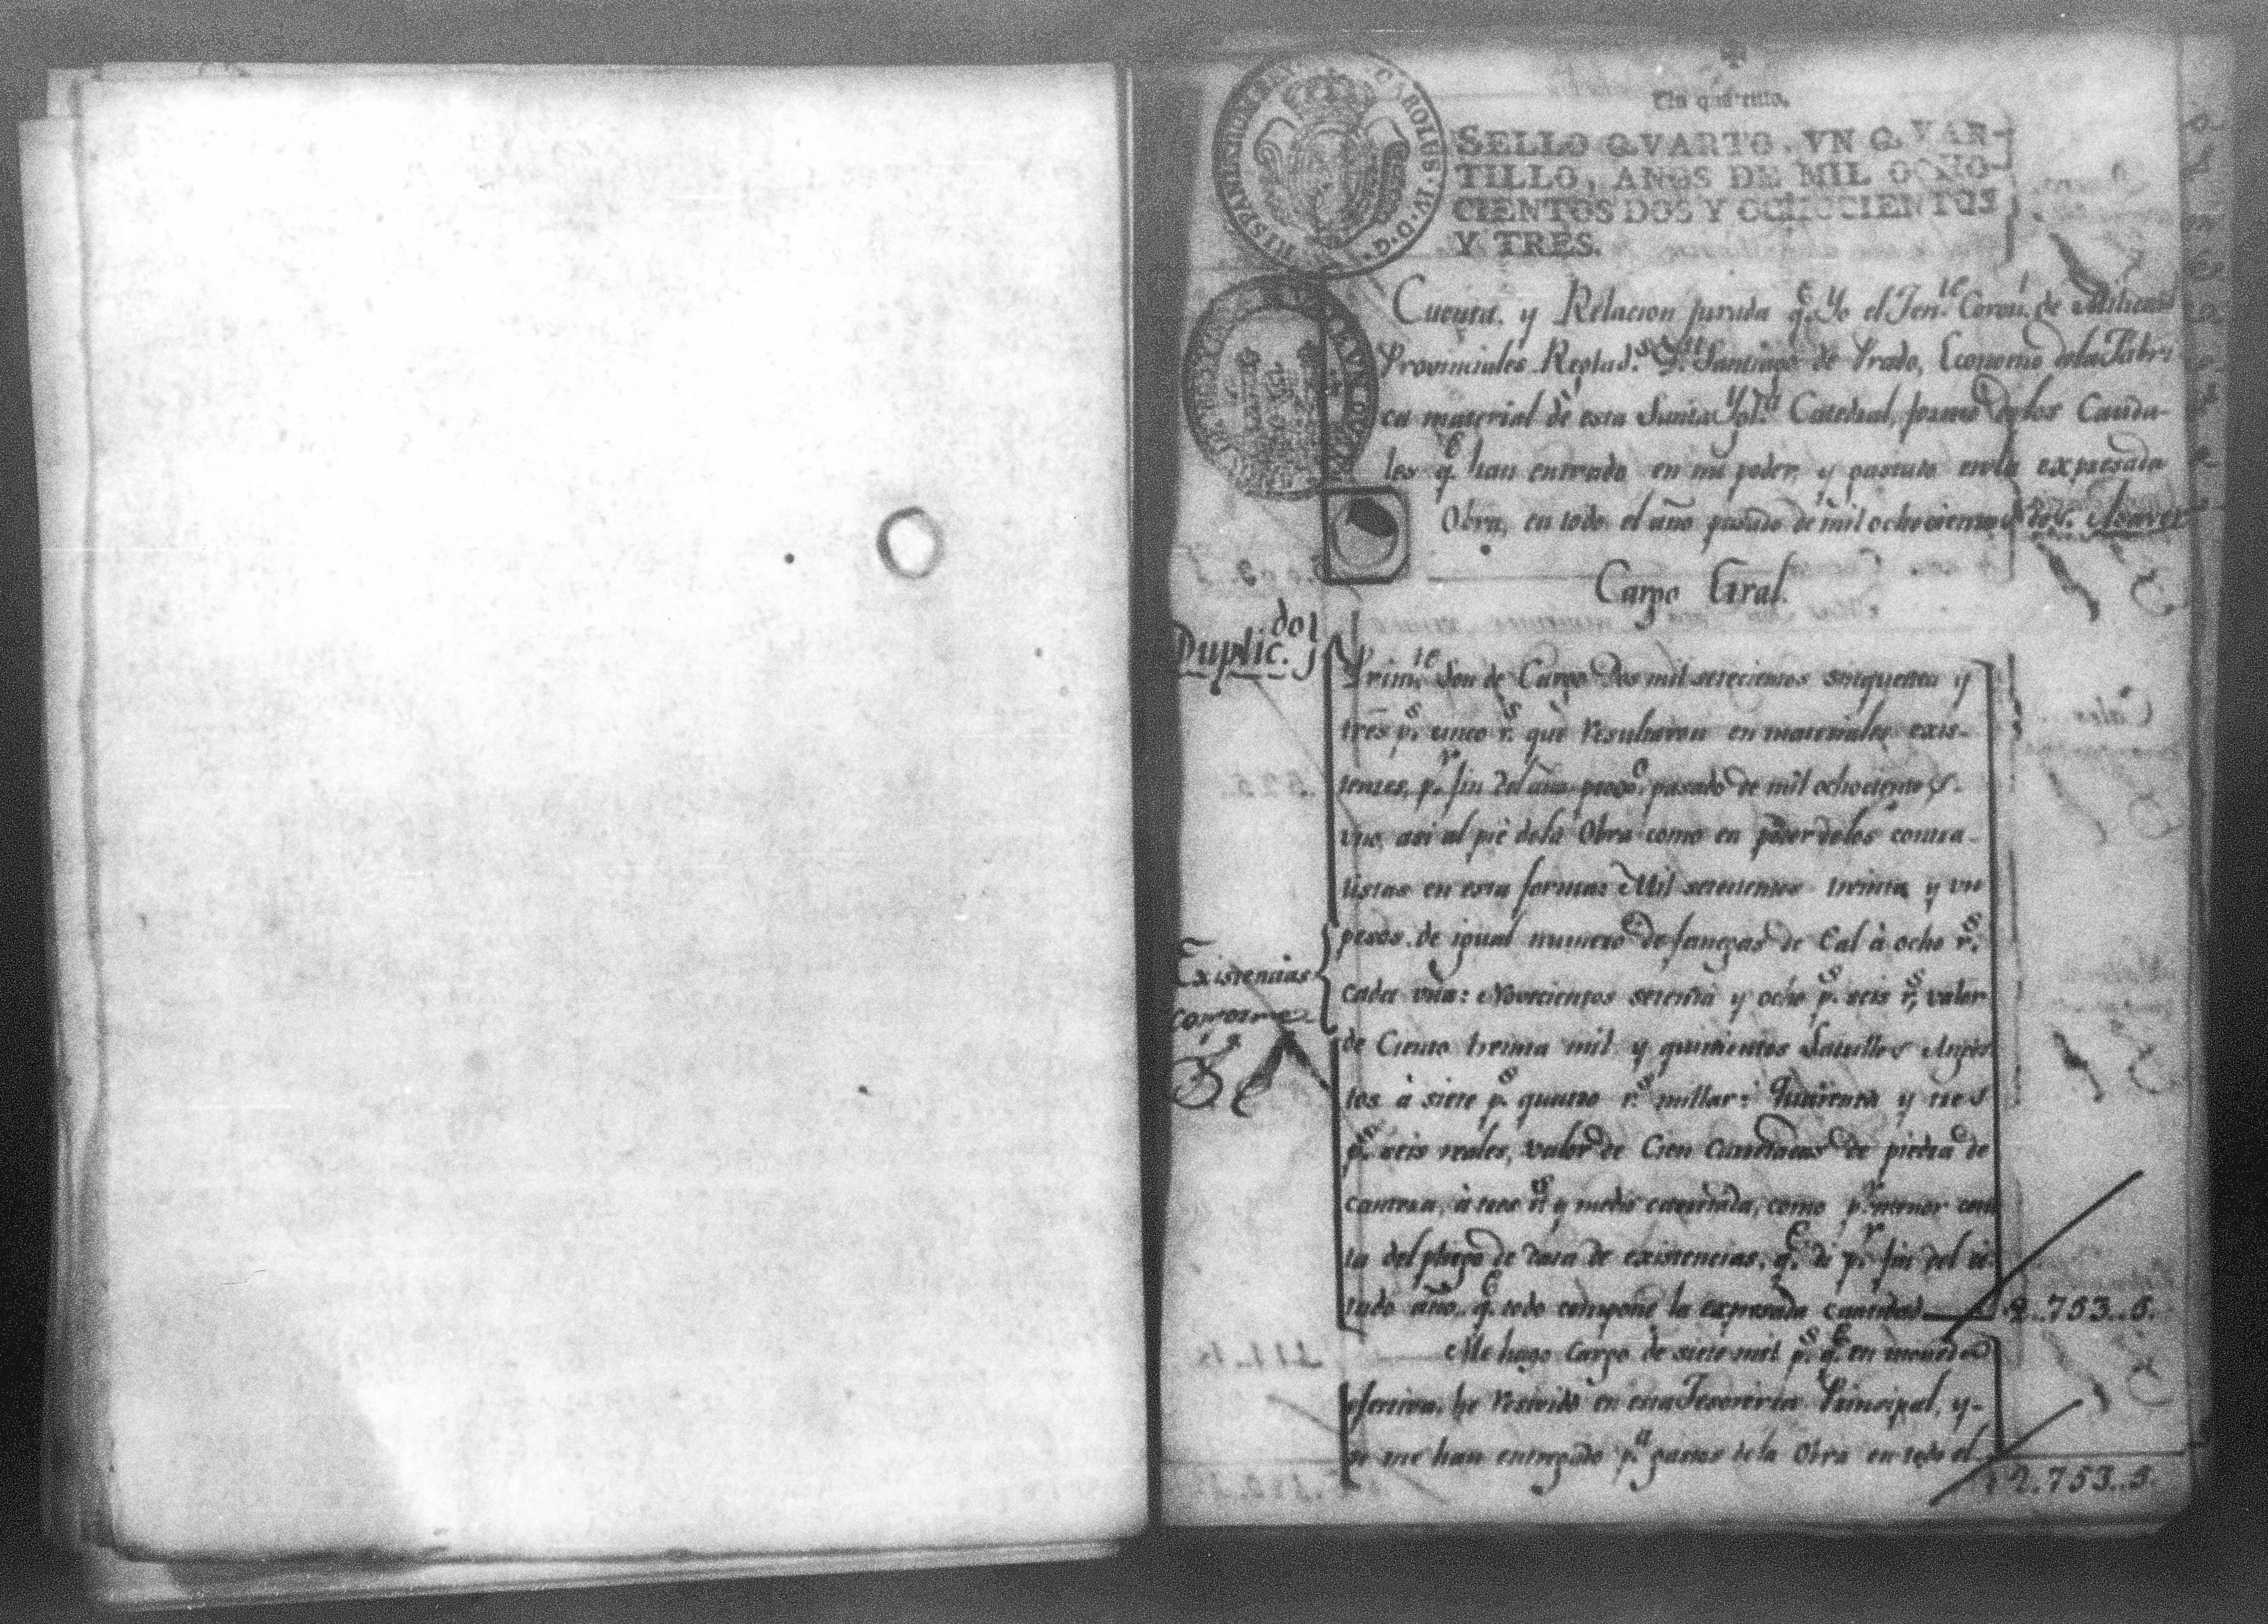 Un quartillo.
SELLO QVARTO, VN QVAR-
TILLO, AÑOS DE MIL OCHO-
CIENTOS DOS Y OCHOCIENTOS
Y TRES.
CAROLUS · IV · D · G · HISPANIARUM REX
Cuenta, y Relacion jurada q.e Yo el Ten.te Coron.l de Milicias
Provinciales Reglad.s D.n Santiago de Prado, Economo dela Fabri
ca material de esta Santa Ygl.a Catedral, formo delos Cauda-
les q.e han entrado en mi poder, y gastado en la expresada
Obra, en todo el año pasado de mil ochocientos dos. Asaver
Cargo Gral.
Duplic.do
Prim.te Son de Cargo Dos mil setecientos sinquenta y
tres p.s cinco r.s que resultaron en materiales exis-
tentes, p.r fin del año proxo. pasado de mil ochocientos
uno, asi al pie dela Obra como en poder delos contra-
tistas en esta forma: Mil setecientos treinta y un
pesos de igual numero de fanegas de Cal à ocho r.s
Existencias
conforme
cada una: Novecientos setenta y ocho p.s seis r.s, valor
de Ciento treinta mil y quinientos Ladrillos
tos à siete p.s quatro r.s millar: quarenta y tres
p.s seis reales, valor de Cien Carretadas de piedra de
cantera, à tres r.s y medio carretada, como p.r menor cons
ta del pliego de data de existencias, q.e di p.r fin del ci-
tado año, q.e todo compone la expresada cantidad 2..753..5.
Me hago Cargo de siete mil p.s q.e en moneda
efectiva he resivido en esta Tesoreria Principal, y-
se me han entregado p.a gastos de la Obra en todo el
2.753..5.